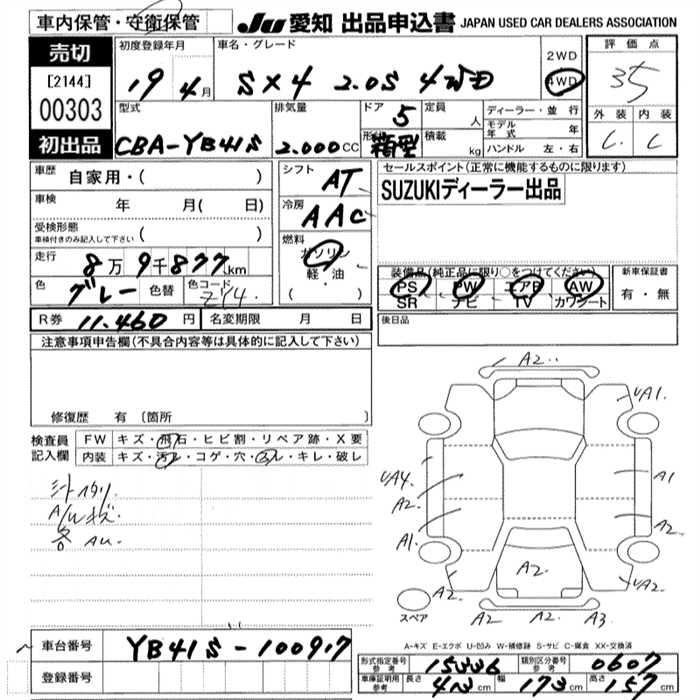 車内保管・守衛保管
JU 愛知 出品申込書 JAPAN USED CAR DEALERS ASSOCIATION
売切
[2144]
00303
初出品
初度登録年月
19 4月
車名・グレード
SX4 2.0S 4WD
2WD
4WD
評価点
35
外装 内装
C C
型式
CBA-YB41S
排気量
2.000cc
ドア
5
形状
箱型
定員
人
積載
kg
ディーラー・並行
モデル年式 年
ハンドル 左・右
車歴
自家用・( )
車検
年 月( 日)
受検形態
車検付きのみ記入して下さい ( )
走行
8万9千877km
色
グレー
色替
色コード
ZY4
シフト
AT
冷房
AAC
燃料
ガソリン
軽・油
( )
セールスポイント(正常に機能するものに限ります)
SUZUKIディーラー出品
装備品(純正品に限り○をつけてください)
PS PW エアB AW
SR ナビ TV カワシート
新車保証書
有・無
R券 11.460円
名変期限 月 日
後日品
注意事項申告欄(不具合内容等は具体的に記入して下さい)
修復歴 有 〔箇所 〕
検査員
記入欄
FW キズ・飛石・ヒビ割・リペア跡・X要
内装 キズ・汚レ・コゲ・穴・スレ・キレ・破レ
シートスタリ.
A/Wキズ.
各 AU.
A2..
UA1.
UA4.
A2.
A1.
A1
A2
A2.
A2.
A2
UA2.
A2
A2
A3.
スペア
車台番号
YB41S-100917
登録番号
A-キズ E-エクボ U-凹み W-補修跡 S-サビ C-腐食 XX-交換済
形式指定番号
参考
15446
類別区分番号
参考
0607
車庫証明用
参考
長さ 413cm
幅 173cm
高さ 157cm